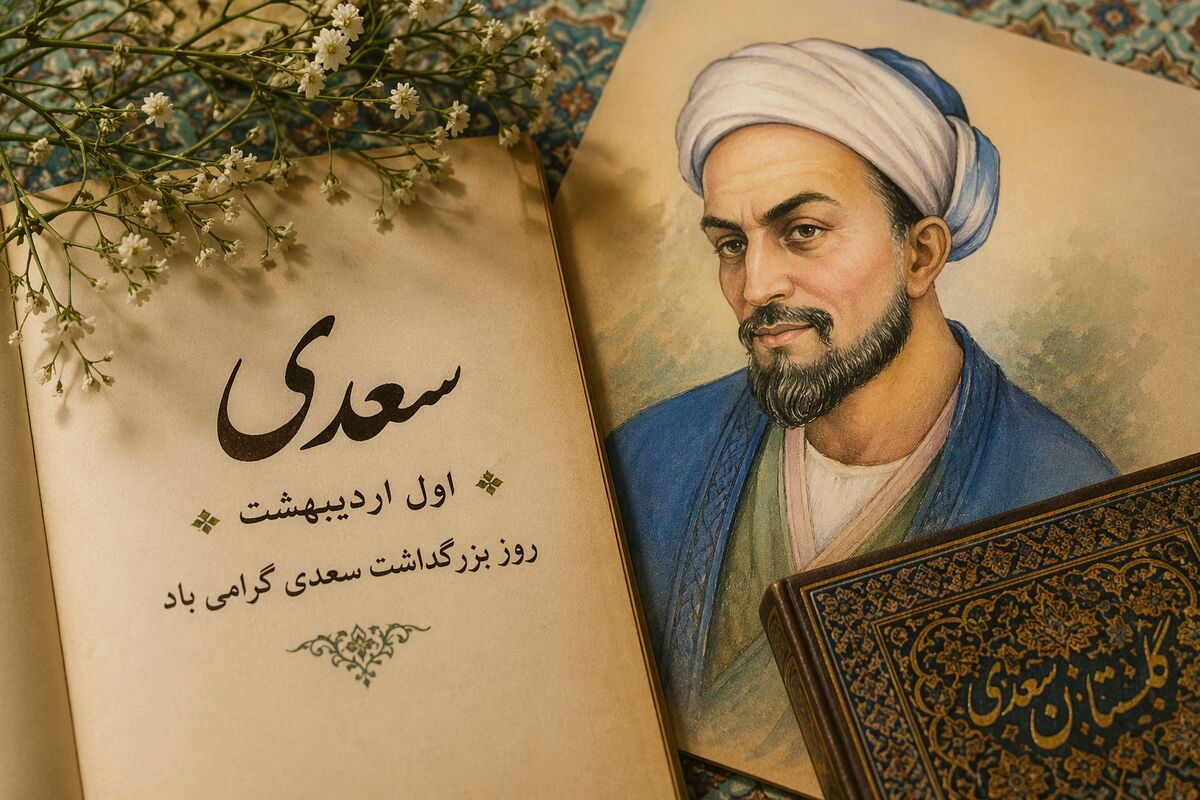 سعدی
اول اردیبهشت
روز بزرگداشت سعدی گرامی باد
گلستان سعدی